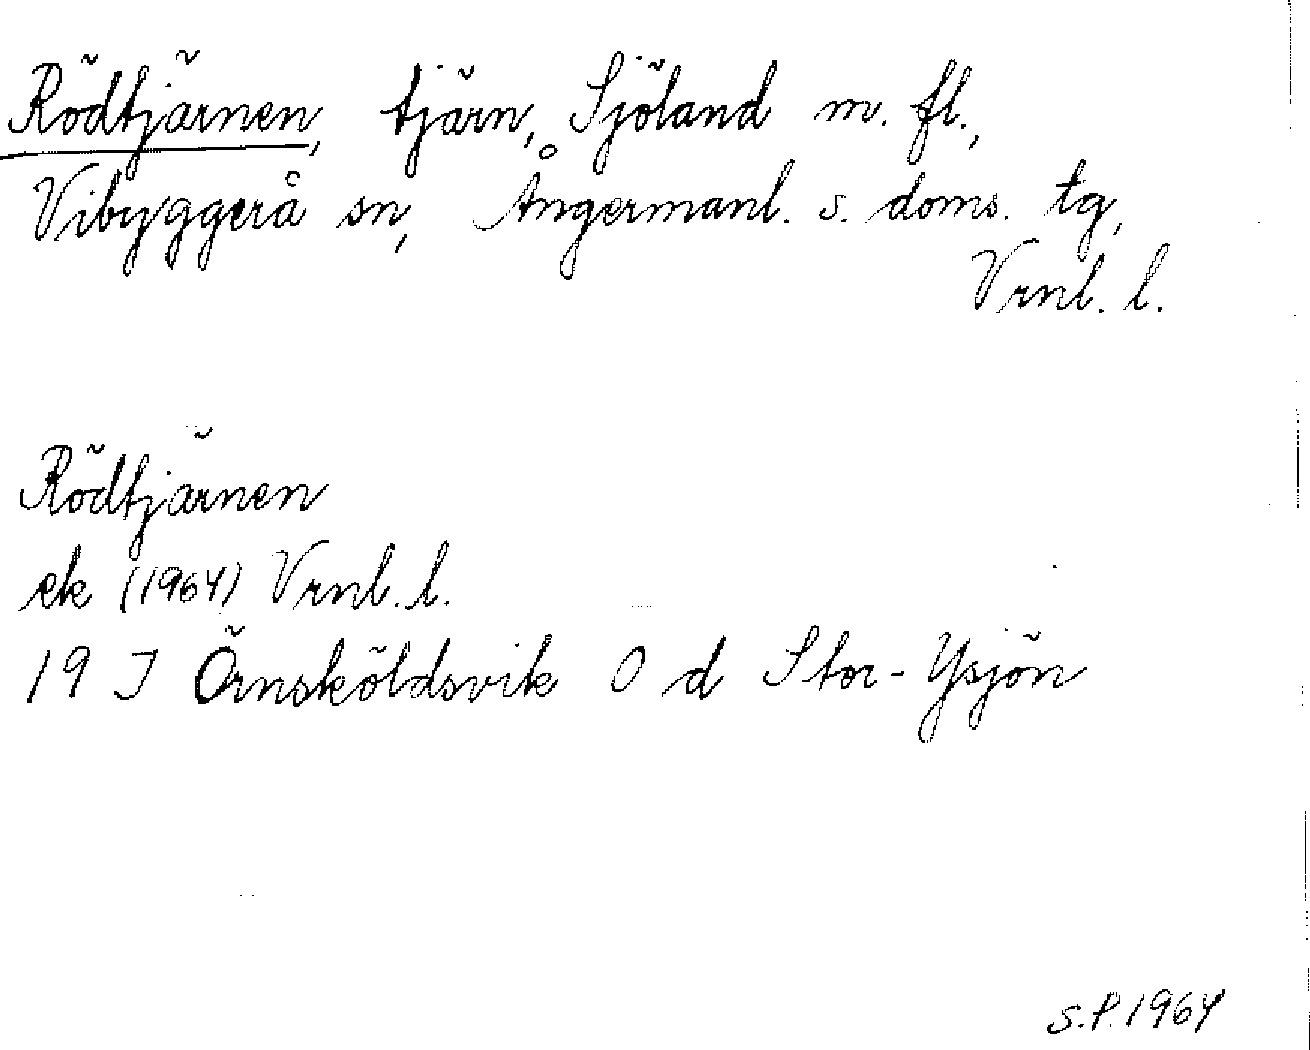 Rödtjärnen, tjärn, Sjöland m. fl.,
Vibyggerå sn, Ångermanl. s. doms. tg,
Vrnl. l.
Rödtjärnen
ek (1964) Vrnl. l.
19 J Örnsköldsvik O d Stor-Ysjön
S.P. 1964